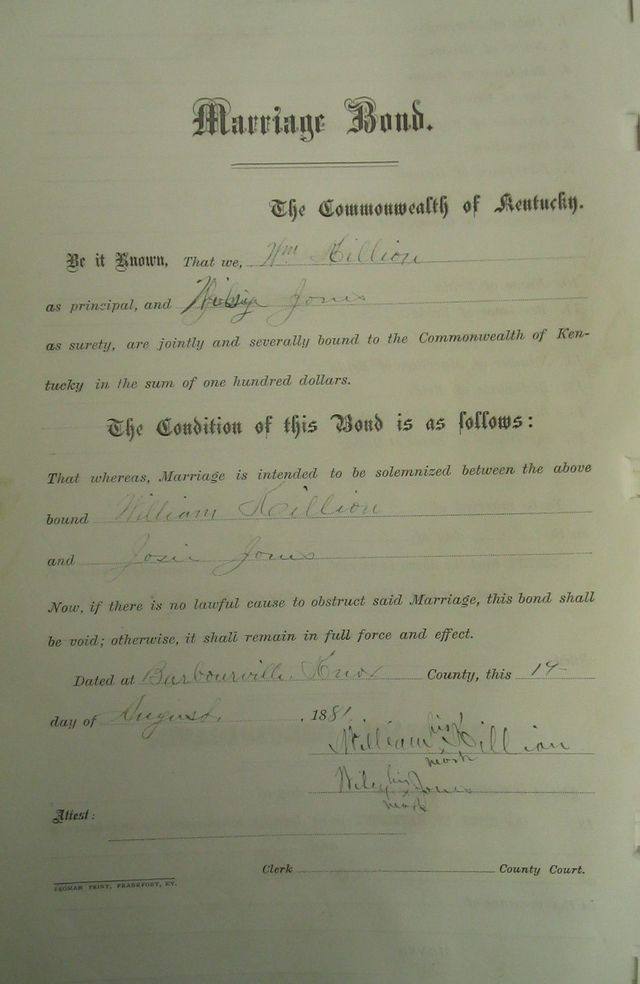 Marriage Bond.
The Commonwealth of Kentucky.
Be it Known, That we, Wm Killion
as principal, and Wiley Jones
as surety, are jointly and severally bound to the Commonwealth of Ken-
tucky in the sum of one hundred dollars.
The Condition of this Bond is as follows:
That whereas, Marriage is intended to be solemnized between the above
bound William Killion
and Josie Jones
Now, if there is no lawful cause to obstruct said Marriage, this bond shall
be void; otherwise, it shall remain in full force and effect.
Dated at Barbourville, Knox County, this 14
day of August, 1881
William his Killian
mark
Wiley his Jones
mark
Attest:
Clerk County Court.
YEOMAN PRINT, FRANKFORT, KY.